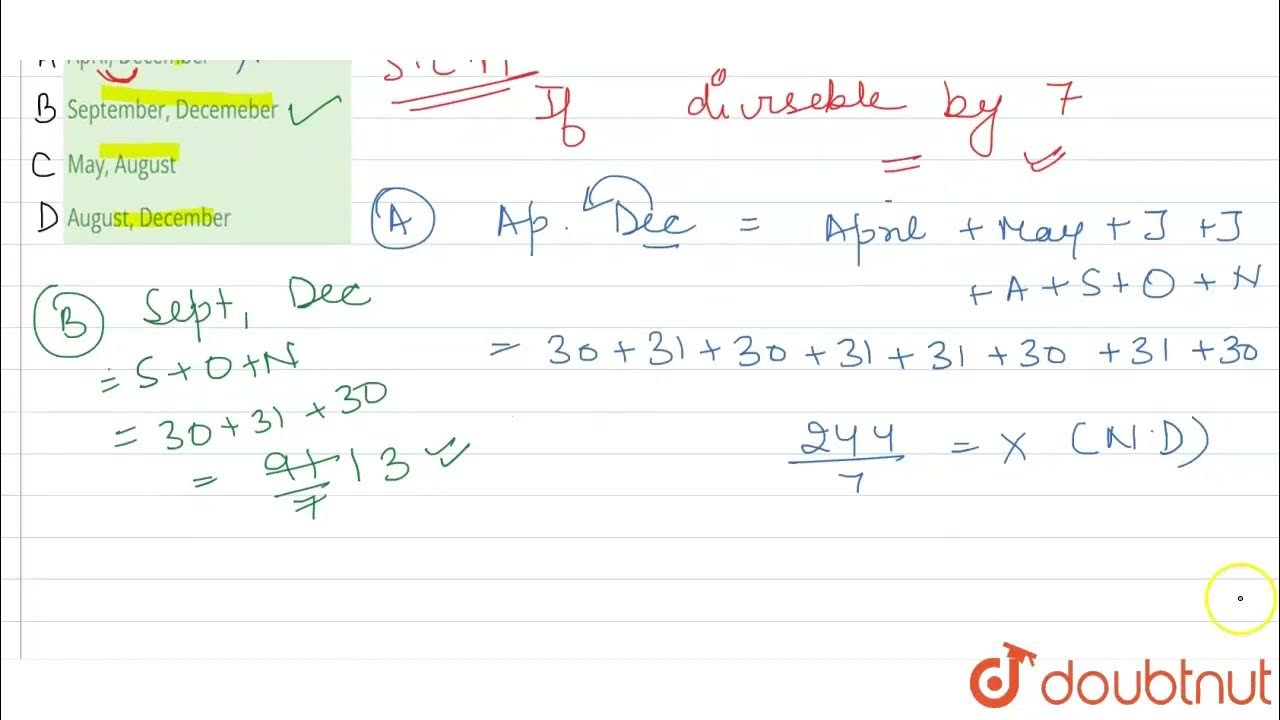 A April, December
If diviseble by 7
B September, Decemeber
C May, August
D August, December
A Ap. Dec = April + May + J + J
+ A + S + O + N
= 30 + 31 + 30 + 31 + 31 + 30 + 31 + 30
244/7 = X (N.D)
B Sept, Dec
= S + O + N
= 30 + 31 + 30
= 91/7 13
doubtnut